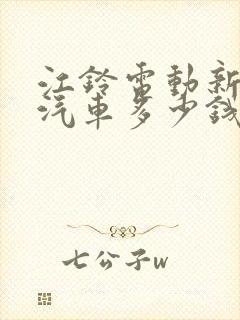 江铃電動新
汽車多少錢
七公子w